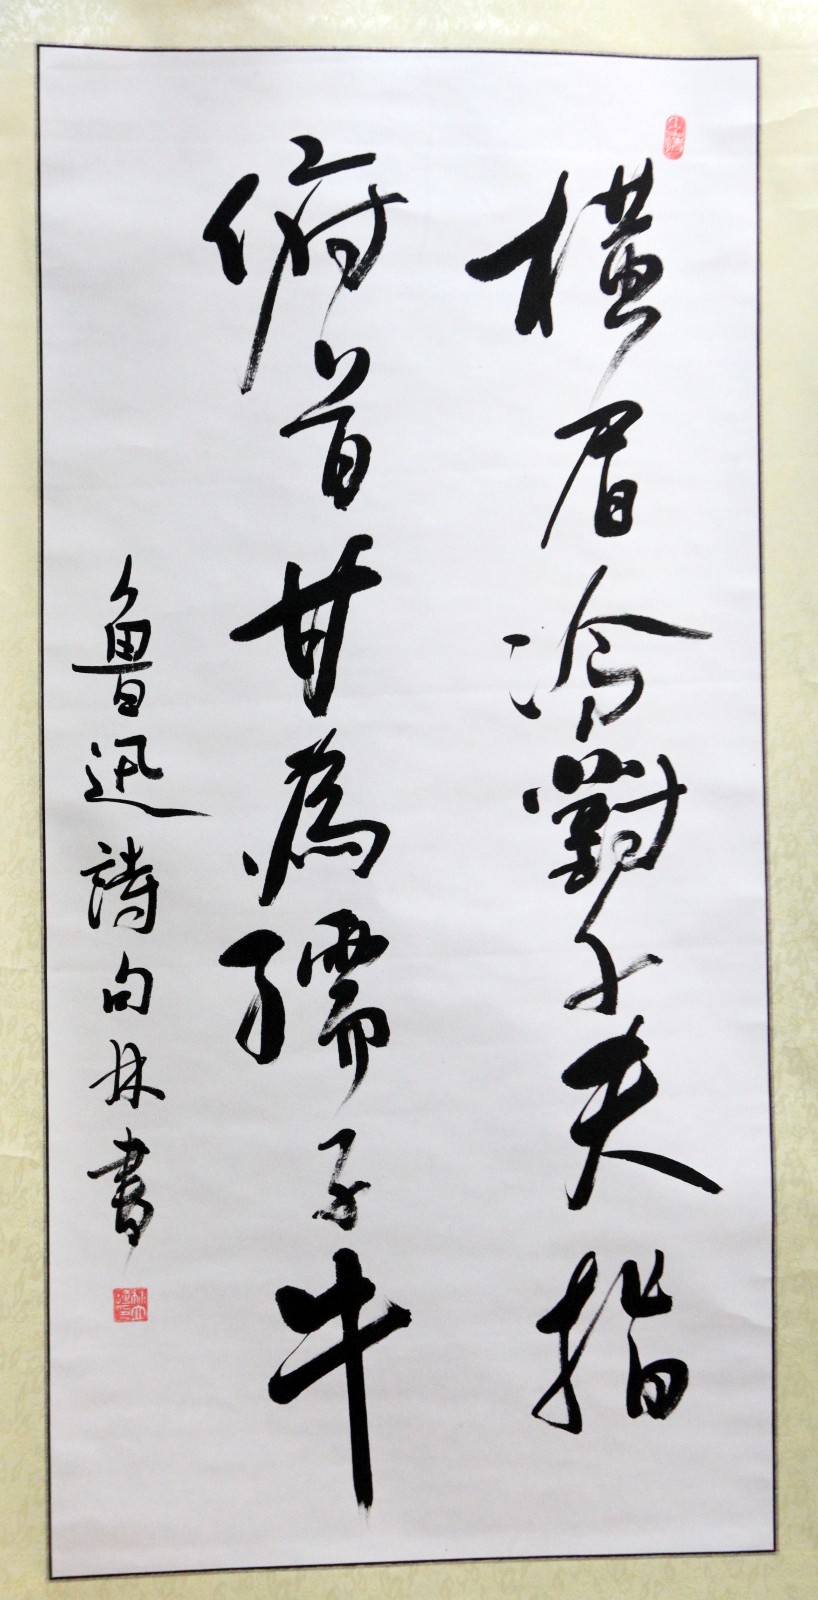 橫眉冷對千夫指
俯首甘為孺子牛
魯迅詩句林書